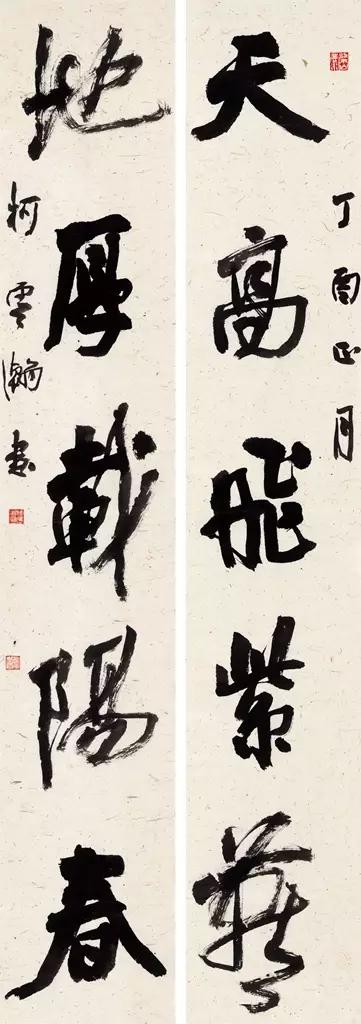 丁酉正月
天高飛紫燕
地厚載陽春
柯雲瀚書